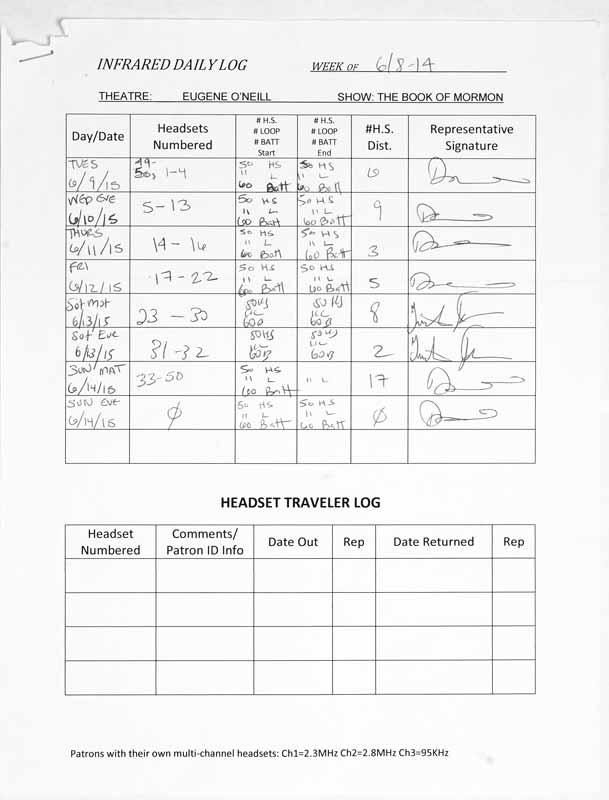 INFRARED DAILY LOG WEEK OF 6/8-14
THEATRE: EUGENE O'NEILL SHOW: THE BOOK OF MORMON
Day/Date Headsets Numbered # H.S. # LOOP # BATT Start # H.S. # LOOP # BATT End #H.S. Dist. Representative Signature
TUES 6/9/15 49-50, 1-4 50 HS 11 L 60 Batt 50 HS 11 L 60 Batt 6
WED EVE 6/10/15 5-13 50 HS 11 L 60 Batt 50 HS 11 L 60 Batt 9
THURS 6/11/15 14-16 50 HS 11 L 60 Batt 50 HS 11 L 60 Batt 3
FRI 6/12/15 17-22 50 HS 11 L 60 Batt 50 HS 11 L 60 Batt 5
Sat Mat 6/13/15 23-30 50HS 11L 60B 50HS 11L 60B 8
Sat Eve 6/13/15 31-32 50HS 11L 60B 50HS 11L 60B 2
SUN MAT 6/14/15 33-50 50 HS 11 L 60 Batt 11 L 17
SUN EVE 6/14/15 Ø 50 HS 11 L 60 Batt 50 HS 11 L 60 Batt Ø
HEADSET TRAVELER LOG
Headset Numbered Comments/ Patron ID Info Date Out Rep Date Returned Rep
Patrons with their own multi-channel headsets: Ch1=2.3MHz Ch2=2.8MHz Ch3=95KHz